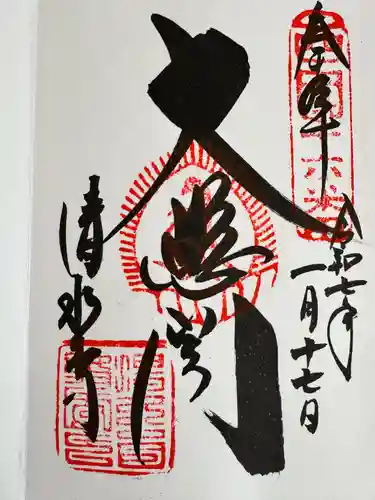 奉拝
令和七年
一月十七日
大悲閣
清水寺